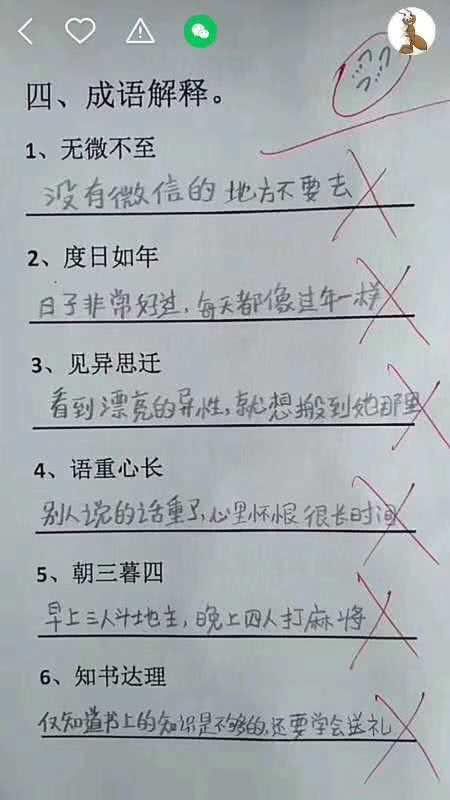 四、成语解释。
1、无微不至
没有微信的地方不要去
2、度日如年
日子非常好过，每天都像过年一样
3、见异思迁
看到漂亮的异性，就想搬到她那里
4、语重心长
别人说的话重了，心里怀恨很长时间
5、朝三暮四
早上三人斗地主，晚上四人打麻将
6、知书达理
仅知道书上的知识是不够的，还要学会送礼